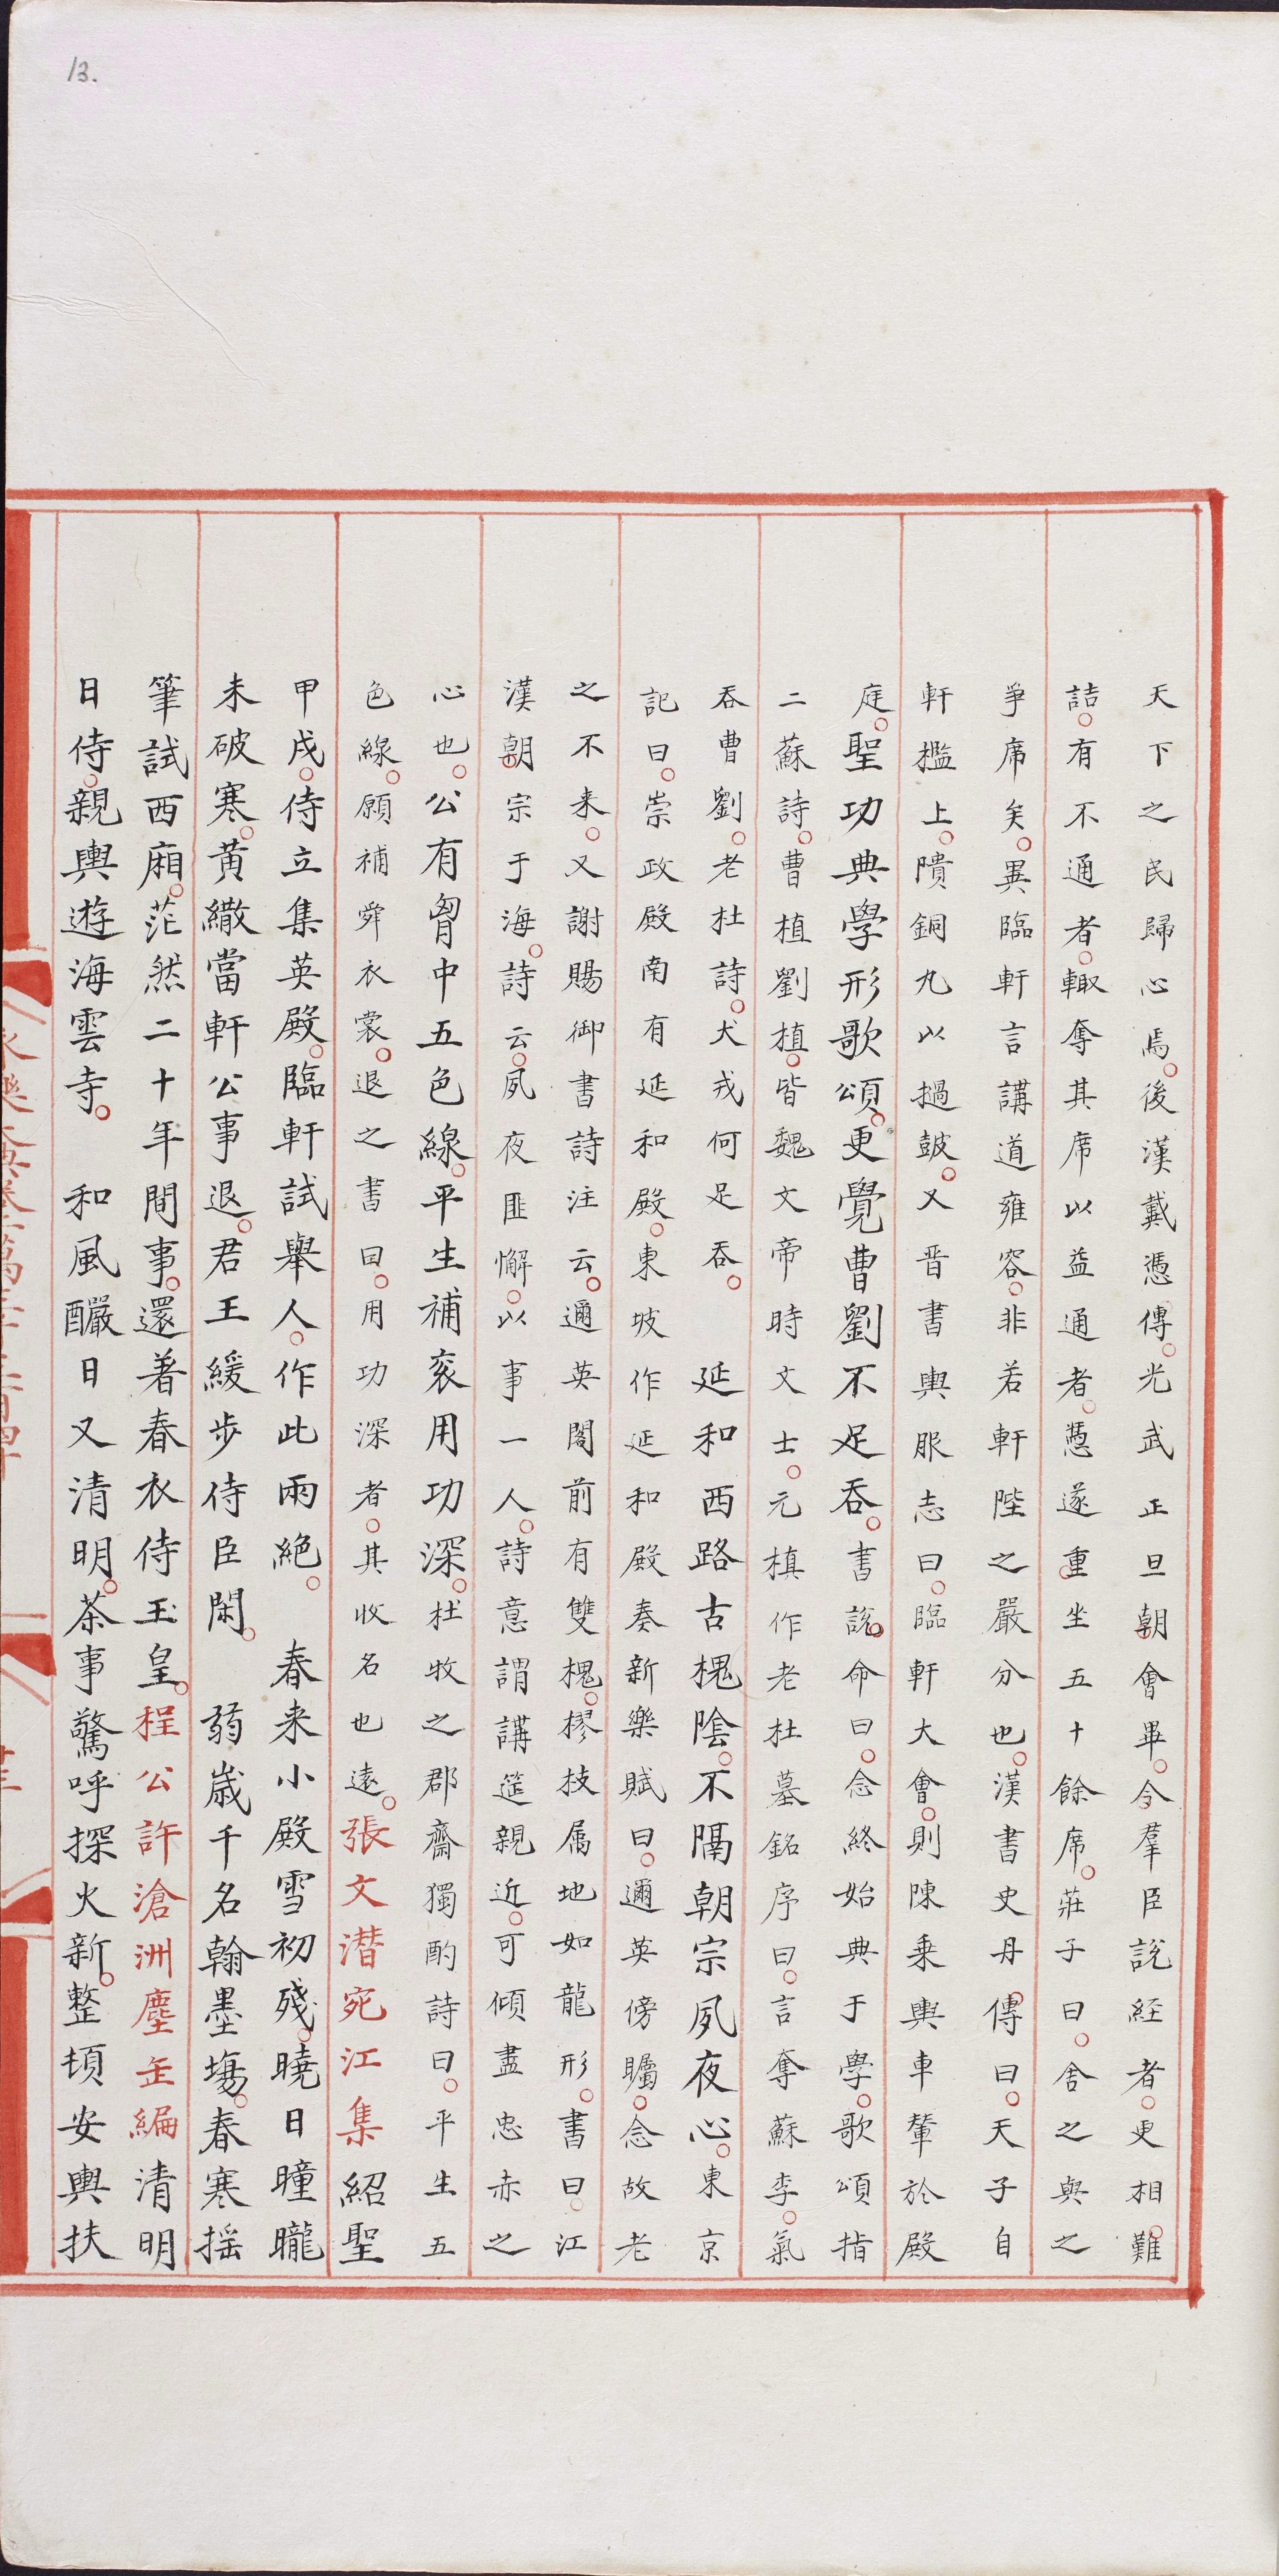 13.
天下之民歸心焉。後漢戴憑傳。光武正旦朝會畢。令羣臣說經者。更相難
詰。有不通者。輙奪其席以益通者。憑遂重坐五十餘席。莊子曰。舍之與之
爭席矣。異臨軒言講道雍容。非若軒陛之嚴分也。漢書史丹傳曰。天子自
軒檻上。隤銅丸以擿鼓。又晉書輿服志曰。臨軒大會。則陳乗輿車輦於殿
庭。聖功典學形歌頌。更覺曹劉不足吞。書說命曰。念終始典于學。歌頌指
二蘇詩。曹植劉植。皆魏文帝時文士。元槙作老杜墓銘序曰。言奪蘇李。氣
吞曹劉。老杜詩。犬戎何足吞。 延和西路古槐陰。不隔朝宗夙夜心。東京
記曰。崇政殿南有延和殿。東坡作延和殿奏新樂賦曰。邇英傍矚。念故老
之不来。又謝賜御書詩注云。邇英閣前有雙槐。樛技属地如龍形。書曰。江
漢朝宗于海。詩云。夙夜匪懈。以事一人。詩意謂講筵親近。可傾盡忠赤之
心也。公有胷中五色線。平生補衮用功深。杜牧之郡齋獨酌詩曰。平生五
色線。願補舜衣裳。退之書曰。用功深者。其收名也遠。張文潜宛江集紹聖
甲戌。侍立集英殿。臨軒試舉人。作此兩絶。 春来小殿雪初殘。曉日曈曨
未破寒。黄繖當軒公事退。君王緩步侍臣閑。 弱歳千名翰墨塲。春寒揺
筆試西廂。茫然二十年間事。還著春衣侍玉皇。程公許滄洲塵缶編清明
日侍。親輿遊海雲寺。 和風釅日又清明。茶事驚呼探火新。整頓安輿扶